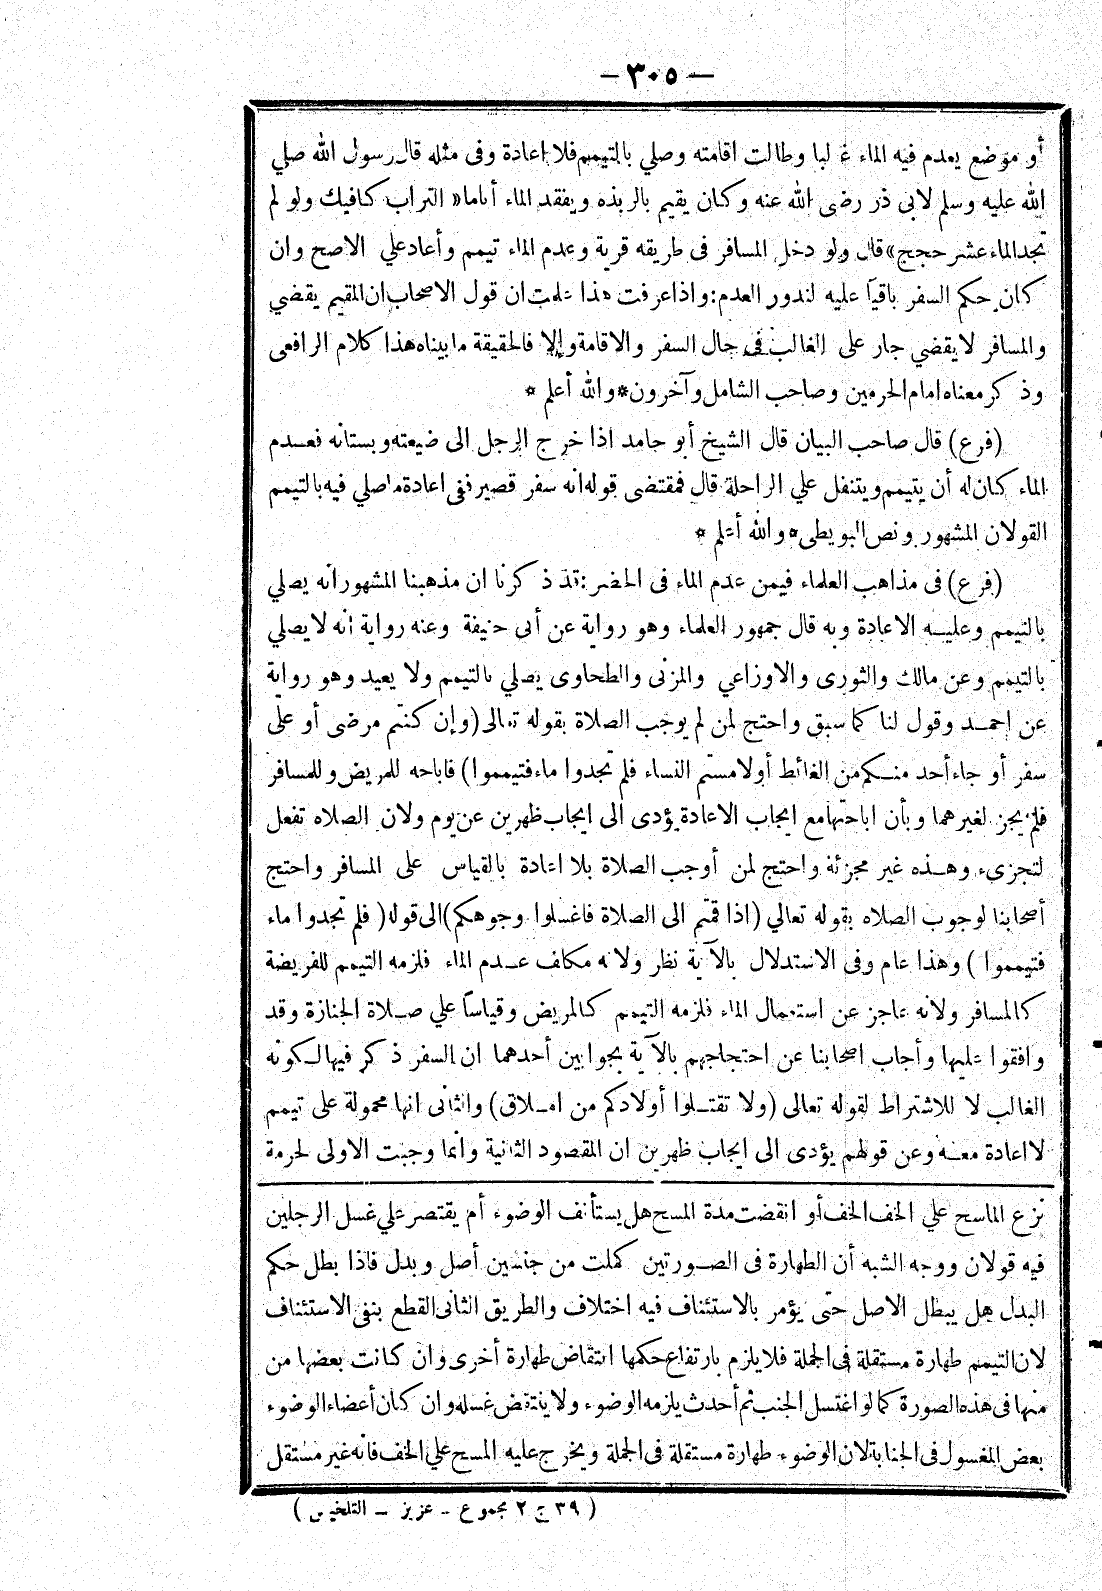 — ٣٠٥ —
أو موضع يعدم فيه الماء غالبا وطالت اقامته وصلي بالتيمم فلا اعادة وفى مثله قال رسول الله صلي
الله عليه وسلم لابى ذر رضى الله عنه وكان يقيم بالربذه ويفقد الماء أياما « التراب كافيك ولو لم
تجد الماء عشر حجج » قال ولو دخل المسافر فى طريقه قرية وعدم الماء تيمم وأعاد علي الاصح وان
كان حكم السفر باقيا عليه لندور العدم : واذا عرفت هذا علمت ان قول الاصحاب ان المقيم يقضي
والمسافر لا يقضي جار على الغالب فى حال السفر والاقامة وإلا فالحقيقة ما بيناه هذا كلام الرافعى
وذكر معناه امام الحرمين وصاحب الشامل وآخرون * والله أعلم *
(فرع) قال صاحب البيان قال الشيخ أبو حامد اذا خرج الرجل الى ضيعته وبستانه فعدم
الماء كان له أن يتيمم ويتنفل علي الراحلة قال فمقتضى قوله انه سفر قصير ففى اعادة ما صلي فيه بالتيمم
القولان المشهور ونص البويطى * والله أعلم *
(فرع) فى مذاهب العلماء فيمن عدم الماء فى الحضر : قد ذكرنا ان مذهبنا المشهور انه يصلي
بالتيمم وعليه الاعادة وبه قال جمهور العلماء وهو رواية عن أبى حنيفة وعنه رواية انه لا يصلي
بالتيمم وعن مالك والثورى والاوزاعي والمزنى والطحاوى يصلي بالتيمم ولا يعيد وهو رواية
عن احمد وقول لنا كما سبق واحتج لمن لم يوجب الصلاة بقوله تعالى (وإن كنتم مرضى أو على
سفر أو جاء أحد منكم من الغائط أو لامستم النساء فلم تجدوا ماء فتيمموا) فاباحه للمريض وللمسافر
فلم يجز لغيرهما وبأن اباحتها مع ايجاب الاعادة يؤدى الى ايجاب ظهرين عن يوم ولان الصلاه تفعل
لتجزيء وهذه غير مجزئة واحتج لمن أوجب الصلاة بلا اعادة بالقياس على المسافر واحتج
أصحابنا لوجوب الصلاه بقوله تعالي (اذا قمتم الى الصلاة فاغسلوا وجوهكم) الى قوله (فلم تجدوا ماء
فتيمموا) وهذا عام وفى الاستدلال بالآية نظر ولانه مكلف عدم الماء فلزمه التيمم للفريضة
كالمسافر ولانه عاجز عن استعمال الماء فلزمه التيمم كالمريض وقياسا علي صلاة الجنازة وقد
وافقوا عليها وأجاب اصحابنا عن احتجاجهم بالآية بجوابين أحدهما ان السفر ذكر فيها لكونه
الغالب لا للاشتراط لقوله تعالى (ولا تقتلوا أولادكم من املاق) والثانى انها محمولة على تيمم
لا اعادة معه وعن قولهم يؤدى الى ايجاب ظهرين ان المقصود الثانية وانما وجبت الاولى لحرمة
نزع الماسح علي الخف الخف أو انقضت مدة المسح هل يستأنف الوضوء أم يقتصر علي غسل الرجلين
فيه قولان ووجه الشبه أن الطهارة فى الصورتين كملت من جنسين أصل وبدل فاذا بطل حكم
البدل هل يبطل الاصل حتى يؤمر بالاستئناف فيه اختلاف والطريق الثانى القطع بنفى الاستئناف
لان التيمم طهارة مستقلة فى الجملة فلا يلزم بارتفاع حكمها انتقاض طهارة أخرى وان كانت بعضها من
منها فى هذه الصورة كما لو اغتسل الجنب ثم أحدث يلزمه الوضوء ولا ينتقض غسله وان كان أعضاء الوضوء
بعض المغسول فى الجنابة لان الوضوء طهارة مستقلة فى الجملة ويخرج عليه المسح علي الخف فانه غير مستقل
( ٣٩ ج ٢ مجموع - عزيز - التلخيص )